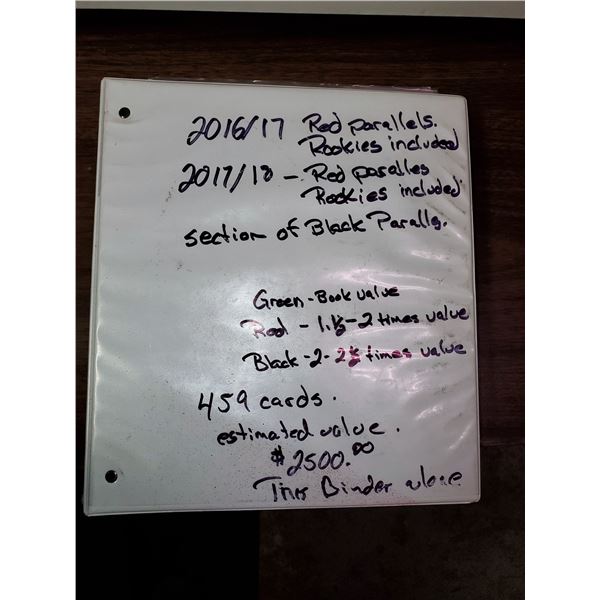 2016/17 Red parallels.
Rookies included
2017/18 - Red paralles
Rookies included
section of Black Paralls.
Green - Book value
Red - 1.½ - 2 times value
Black - 2 - 2½ times value
459 cards.
estimated value.
$2500.00
This Binder alone